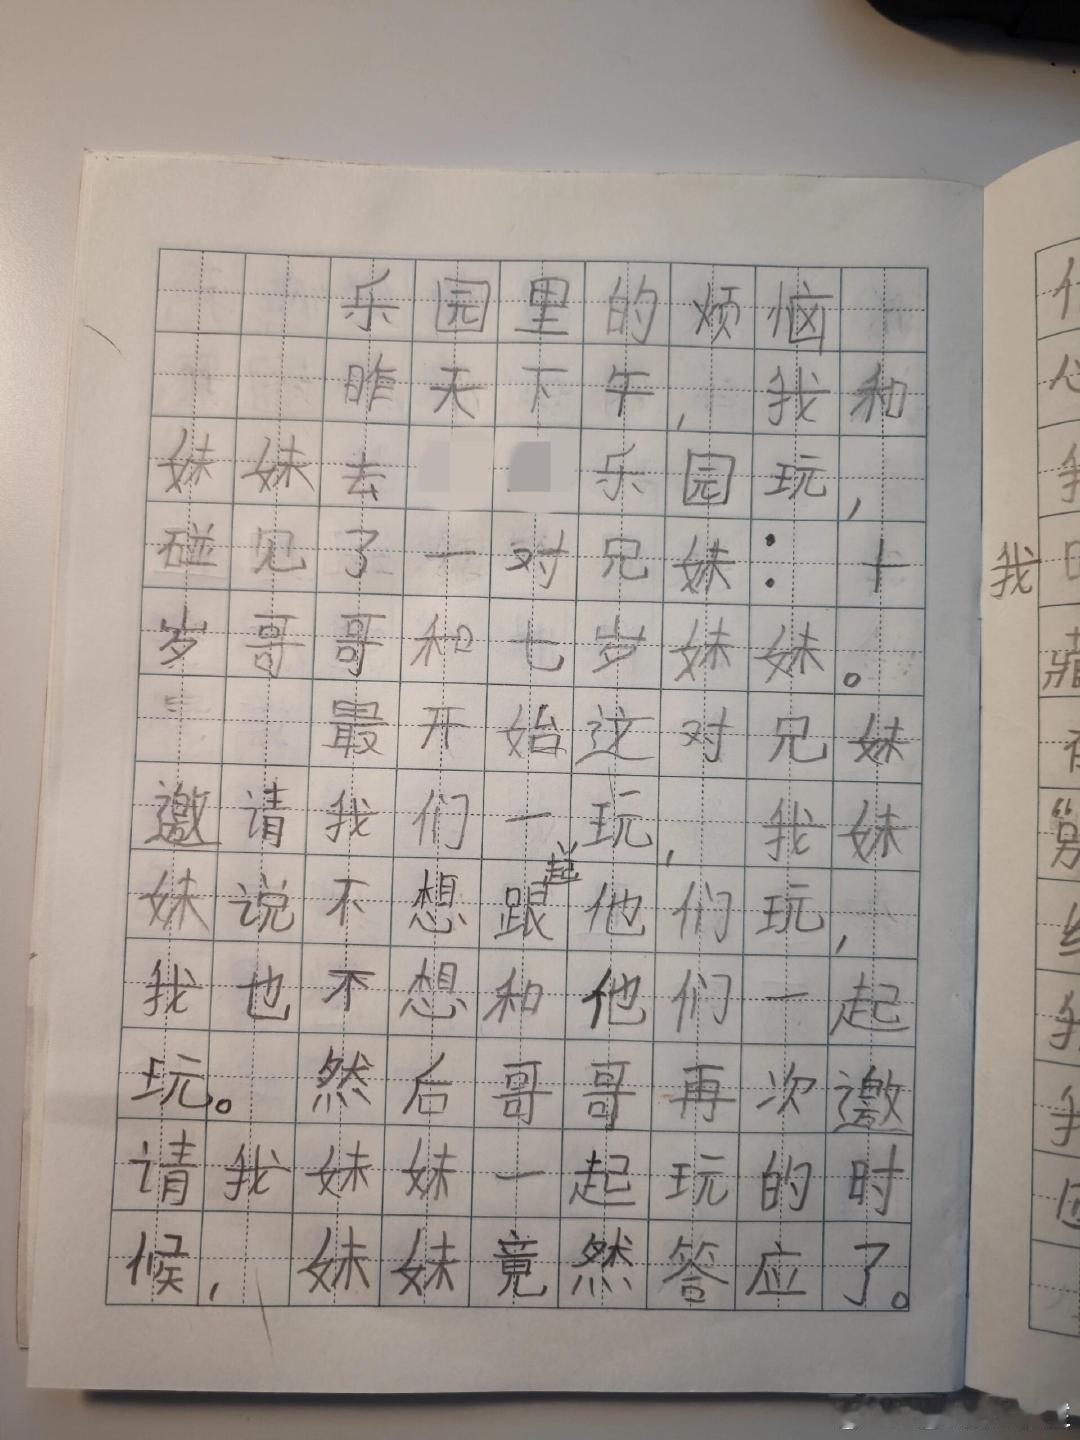 乐园里的烦恼
昨天下午,我和
妹妹去乐园玩,
碰见了一对兄妹:十
岁哥哥和七岁妹妹。
最开始这对兄妹
邀请我们一起玩,我妹
妹说不想跟他们玩,
我也不想和他们一起
玩。然后哥哥再次邀
请我妹妹一起玩的时
候,妹妹竟然答应了。
我